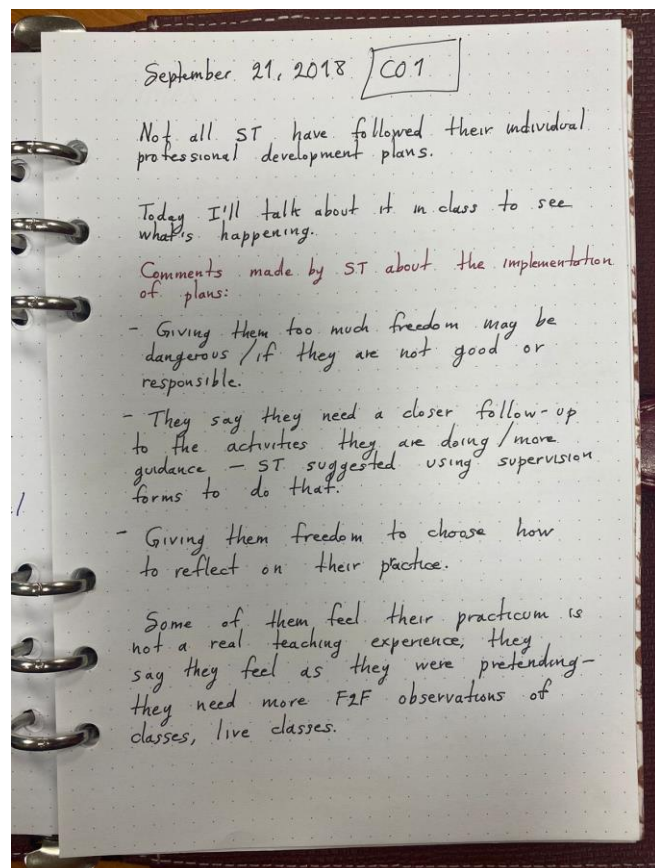 September 21, 2018 CO1
Not all ST have followed their individual
professional development plans.
Today I'll talk about it in class to see
what's happening.
Comments made by ST about the implementation
of plans:
- Giving them too much freedom may be
dangerous / if they are not good or
responsible.
- They say they need a closer follow-up
to the activities they are doing / more
guidance - ST suggested using supervision
forms to do that.
- Giving them freedom to choose how
to reflect on their practice.
Some of them feel their practicum is
not a real teaching experience, they
say they feel as they were pretending-
they need more F2F observations of
classes, live classes.